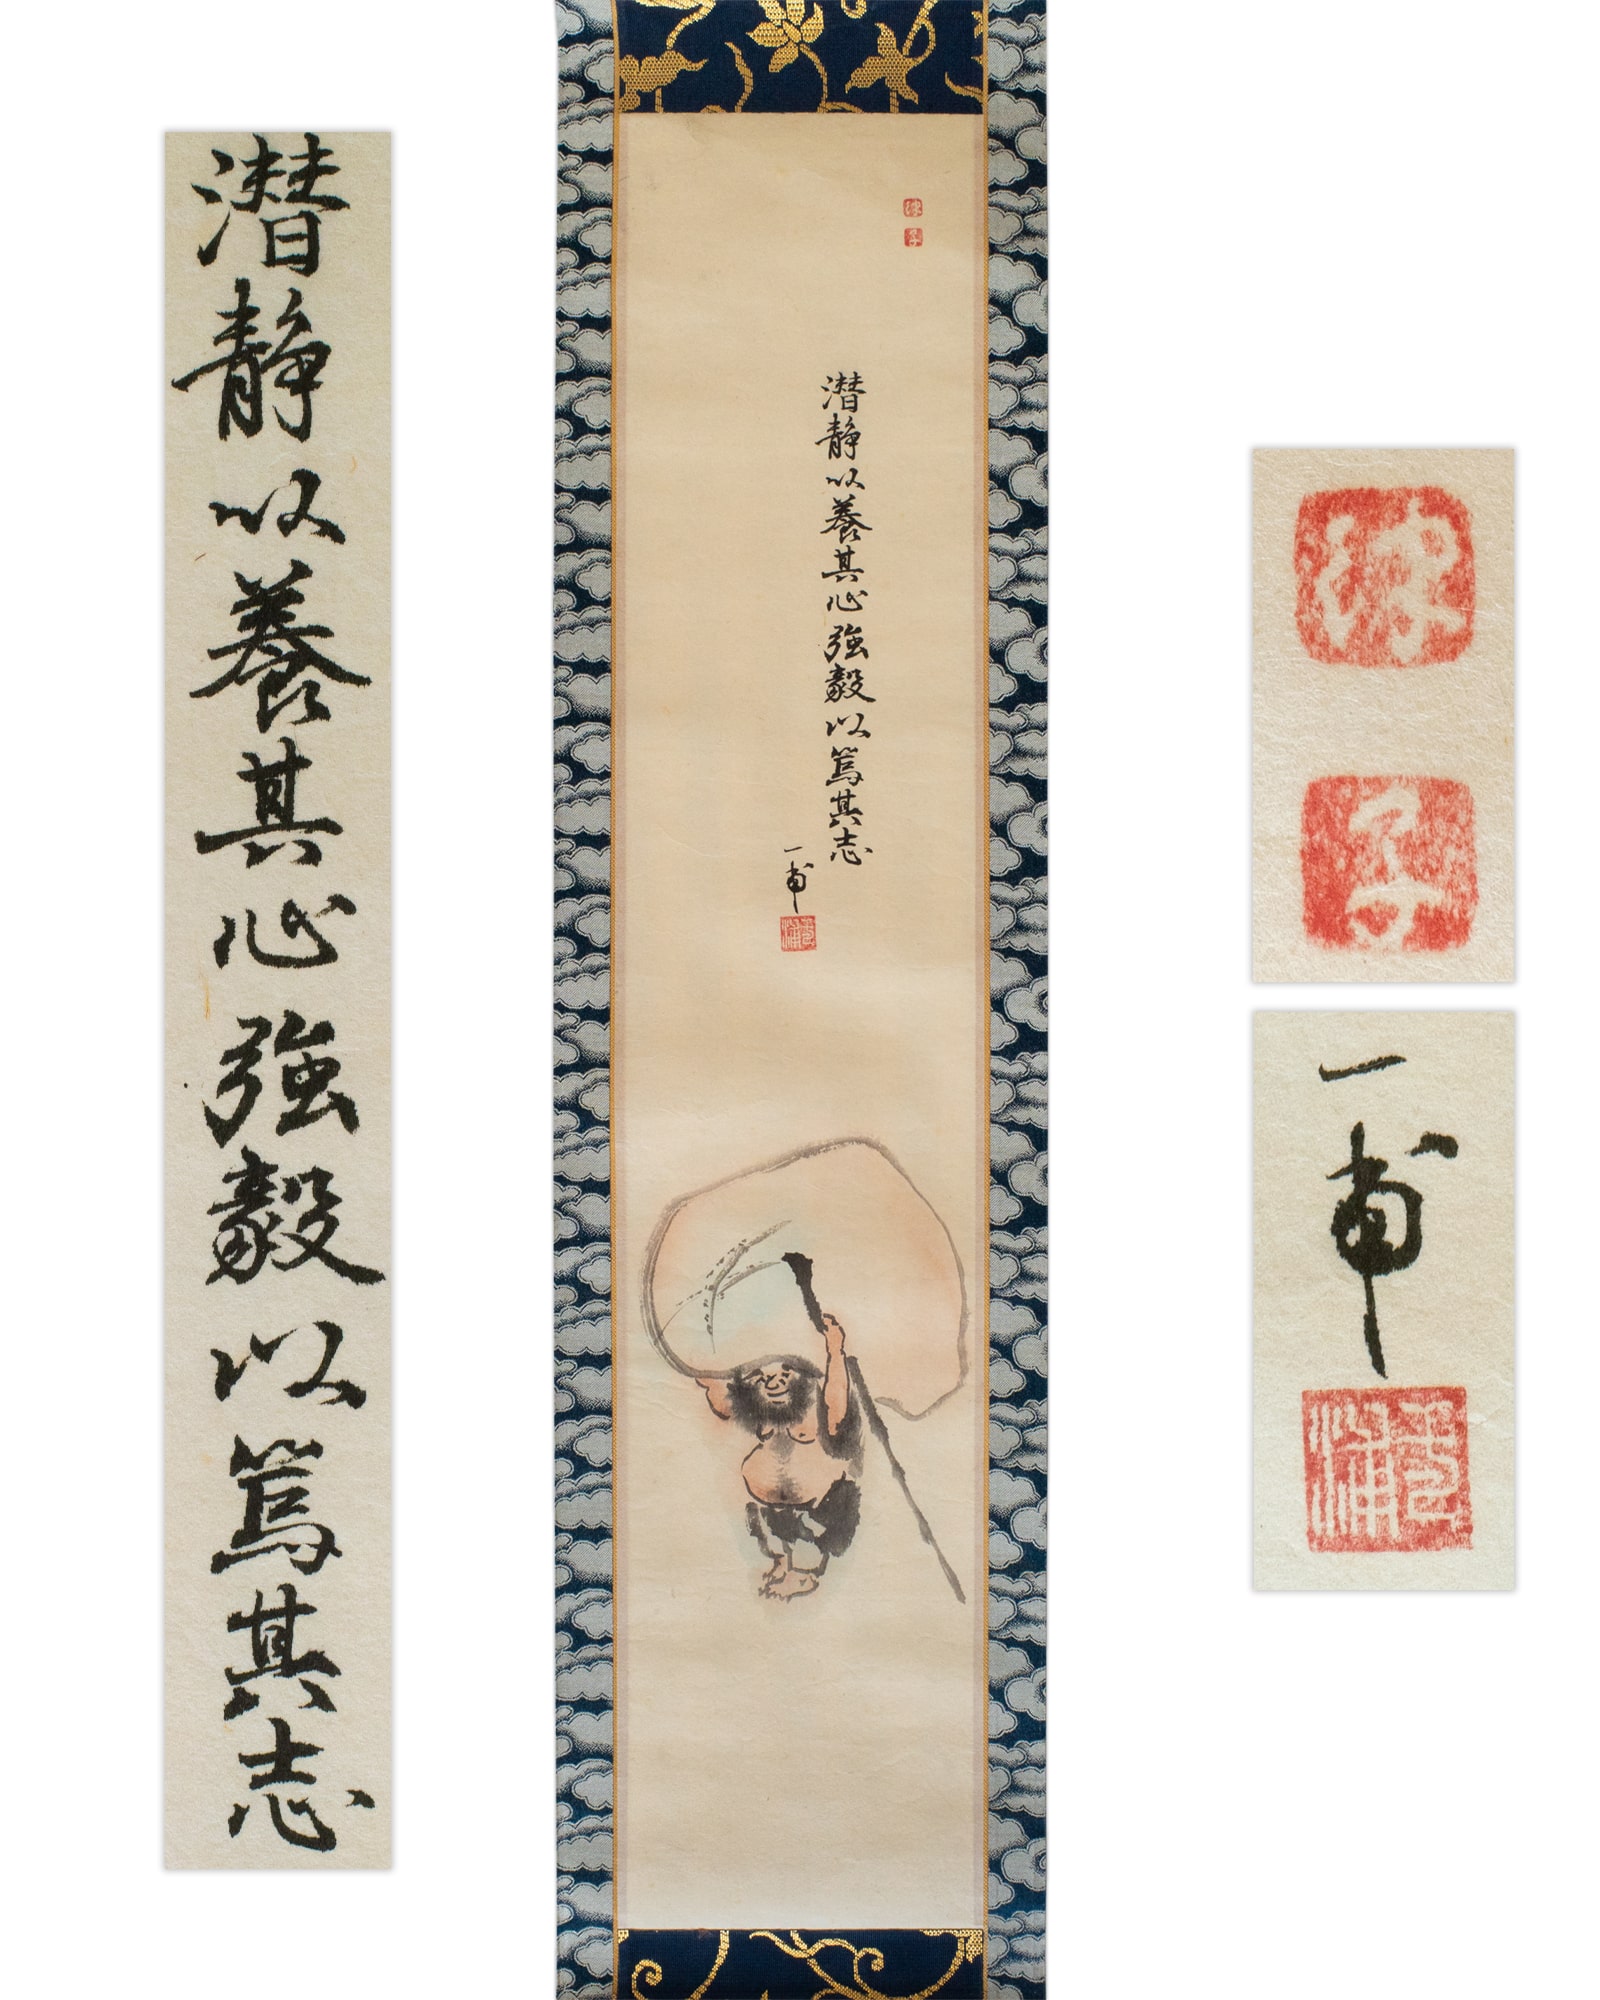 潜静以養其心強毅以篤其志
一甫
潜静以養其心強毅以篤其志
一甫